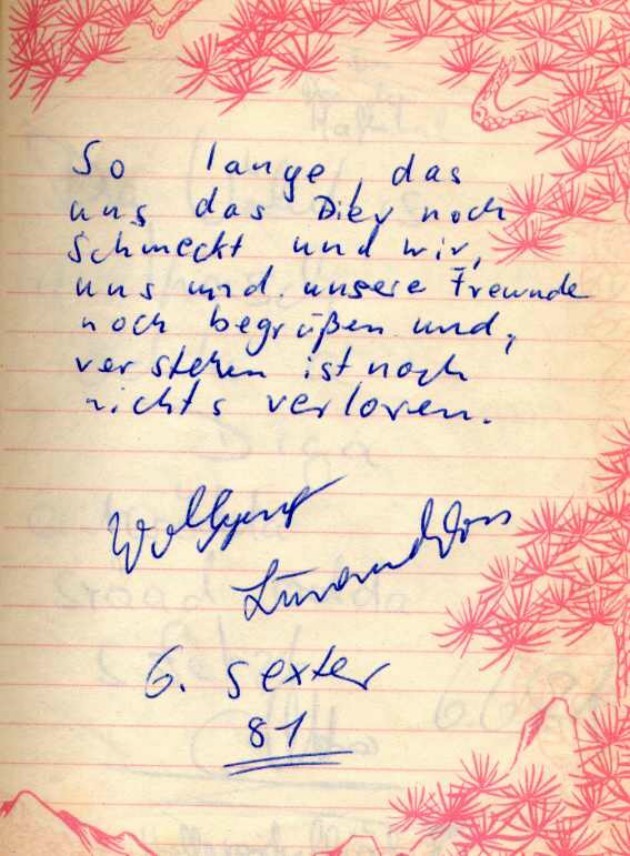 So lange, das
uns das Bier noch
schmeckt und wir,
uns und. unsere Freunde
noch begrüßen und,
verstehen ist noch
nichts verloren.
6. sexter
81